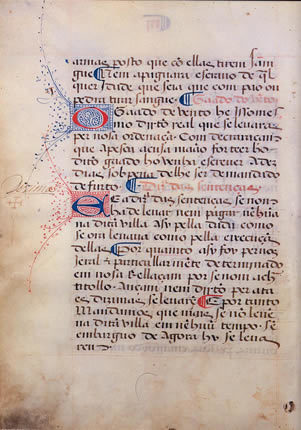 armas posto que cõ ellas tirem sam
gue ¶ Nem apiguara escravo de q̃l
quer Idade que seia que com pao ou
pedra tirar sangue. ¶ Gaado do vento
O Gaado do vento he Isso mes
mo dirto real que se levara
per nosa ordenaçã. Com decraraçam
que a pesoa a cuia mão for ter ho
dito gaado ho venha escrever a dez
dias sob pena de lhe ser demandado
de furto. ¶ Dizima das sentenças
E a dizima das sentenças se nom
ha de levar nem pagar nehũa
na dita villa asy pella dada como
se em levava como pella eixecuçã
dellas ¶ Por quanto asy foy per nos
Jeral e particullar mẽte determinado
em nosa Rellaçam por se nom ach
titollo. Auçam. nem dirto per a tas
es dizimas se levarẽ ¶ E por tanto
Mandamos que mais se nõ leve
na dita villa em nẽhuũ tempo. se
embarguo de Agora hy se leva
rem
Dizima